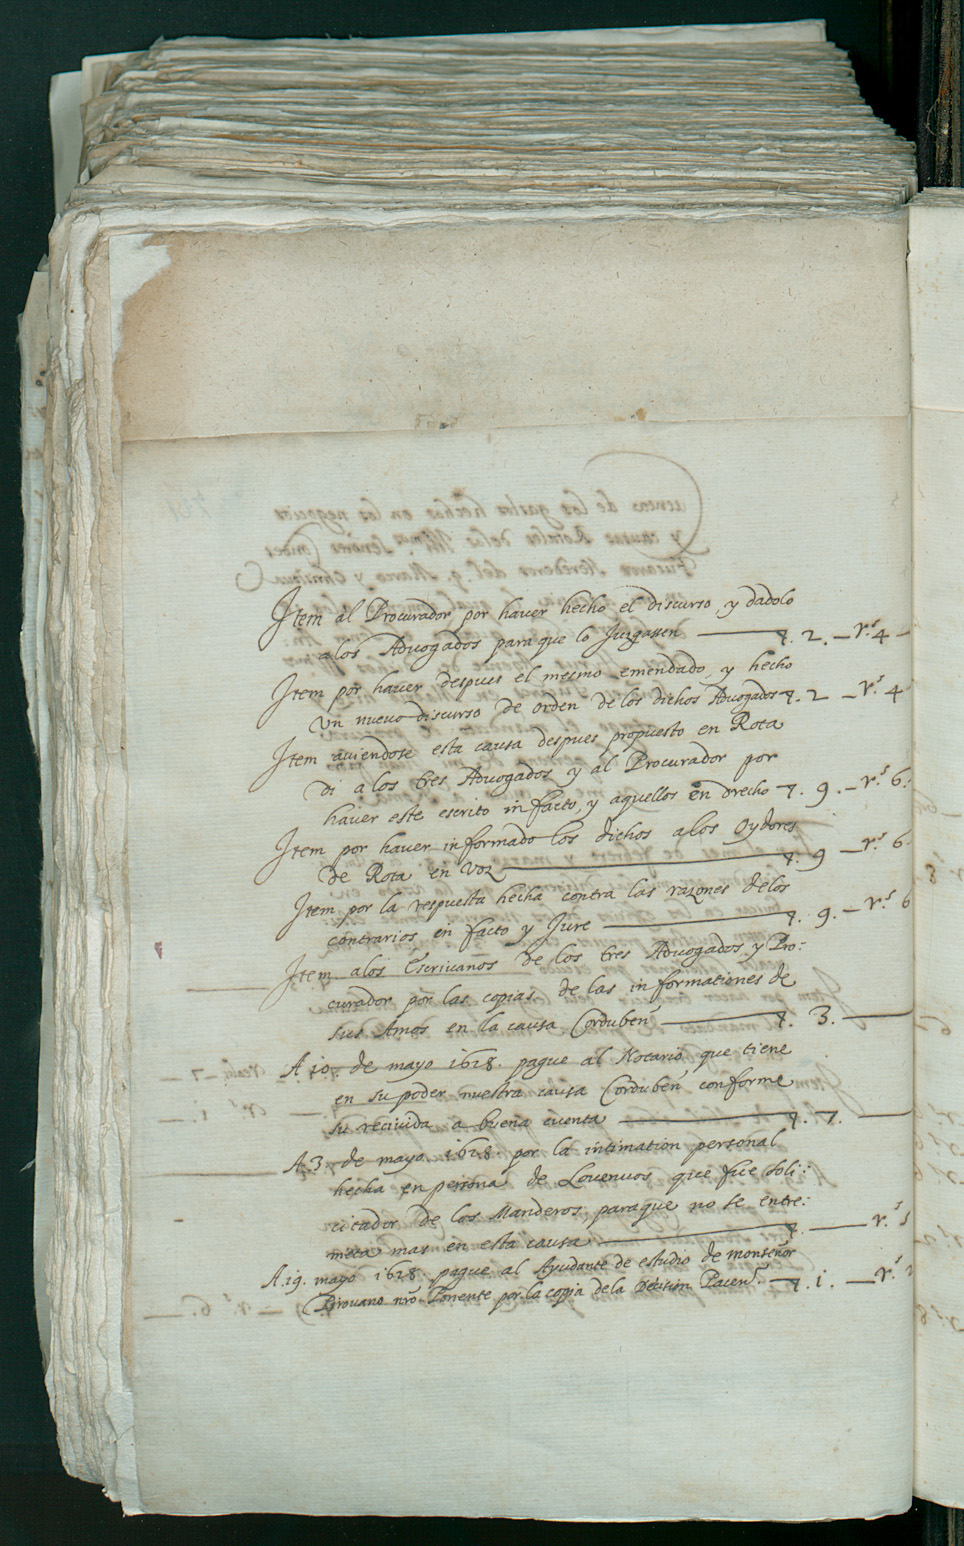 Item al Procurador por hauer hecho el discurso, y dadolo
a los Advogados paraque lo Juzgassen — 7. 2. — r.s 4 —
Item por hauer despues el mesmo emendado, y hecho
un nueuo discurso de orden de los dichos Advogados 7. 2 — r.s 4
Item auiendose esta causa despues propuesto en Rota
di a los tres Advogados y al Procurador por
hauer este escrito in facto, y aquellos en drecho 7. 9. — r.s 6.
Item por hauer informado los dichos a los Oydores
de Rota en Voz — 7. 9 — r.s 6
Item por la respuesta hecha contra las razones de los
contrarios en facto y Jure — 7. 9. — r.s 6
Item a los Escriuanos de los tres Advogados, y Pro:
curador por las copias de las informationes de
sus Amos en la causa Corduben — 7. 3. —
A 10. de mayo 1618. pague al Notario que tiene
en su poder nuestra causa Corduben conforme
su reciuida a buena cuenta — 7. 7. —
A 3. de mayo 1618 por la intimation personal
hecha en persona de Louenuos que fue soli:
citador de los Manderos, paraque no se entre:
meta mas en esta causa — 7. — r.s
A 19. mayo 1618 pague al Ayudante de estudio de monseñor
Pirouano nro Ponente por la copia de la Decision Pacen. — 7. 1. — r.s